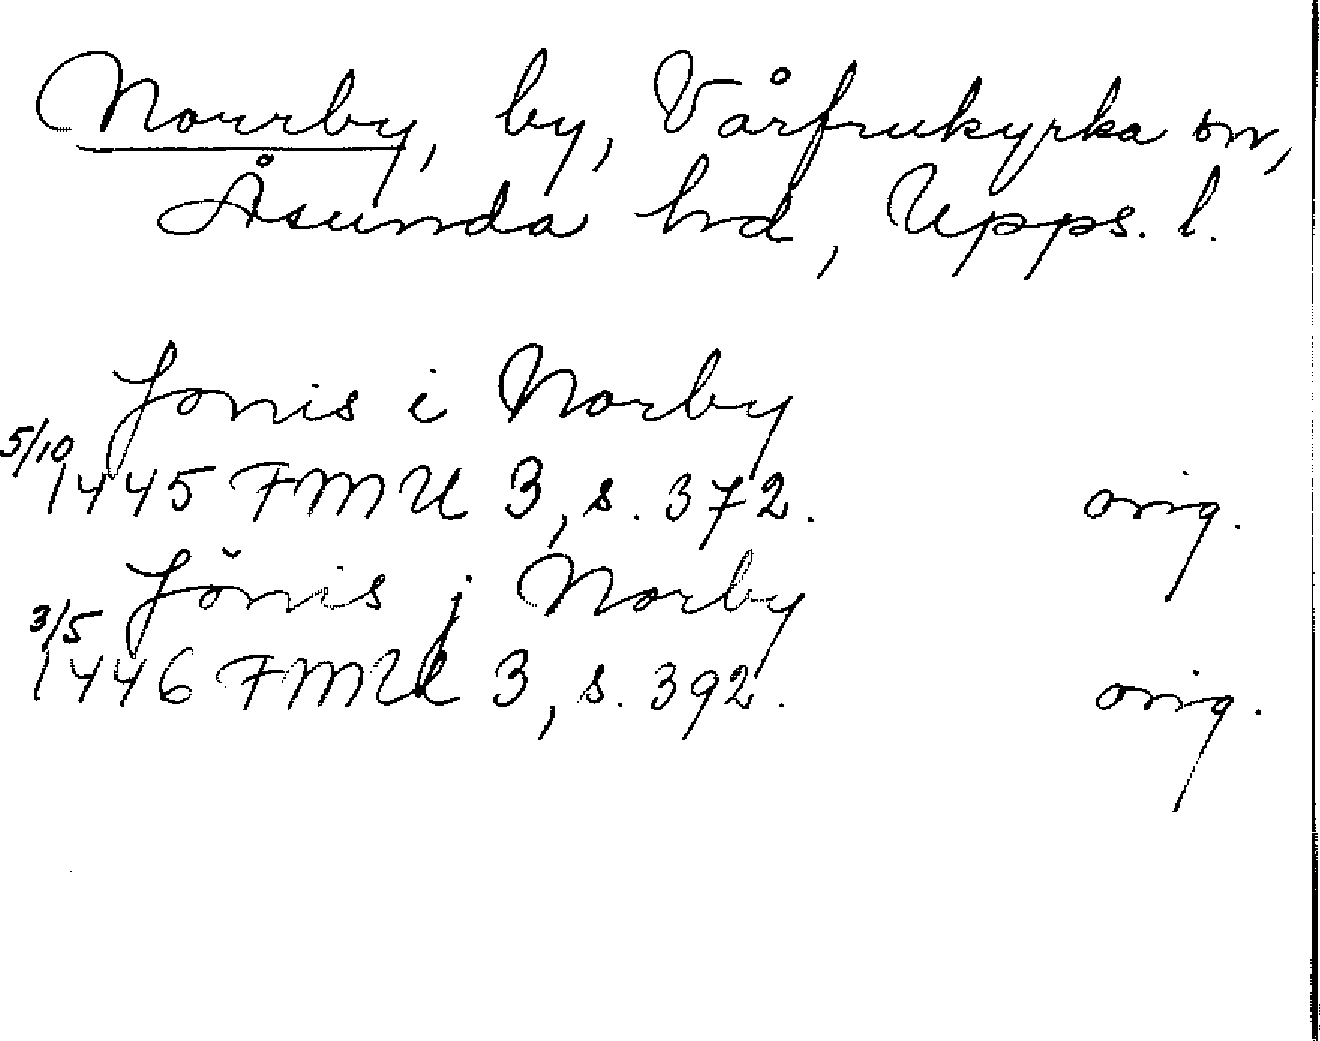 Norrby, by, Vårfrukyrka sn,
Åsunda hd, Upps. l.
Jonis i Norby
5/10
1445 FMU 3, s. 372. orig.
Jönis j Norby
3/5
1446 FMU 3, s. 392. orig.